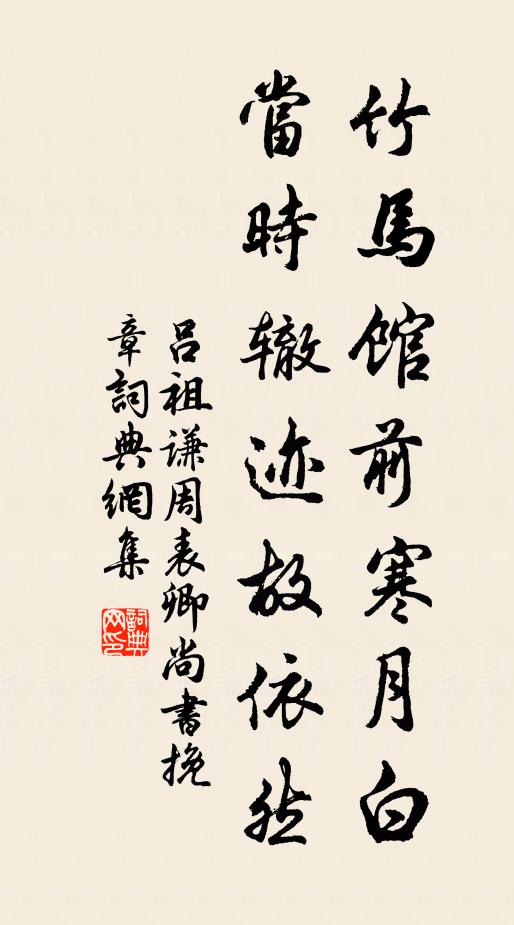 竹馬館前寒月白
當時辙迹故依然
吕祖谦周表卿尚書挽
章詞典網集
詞典
网印